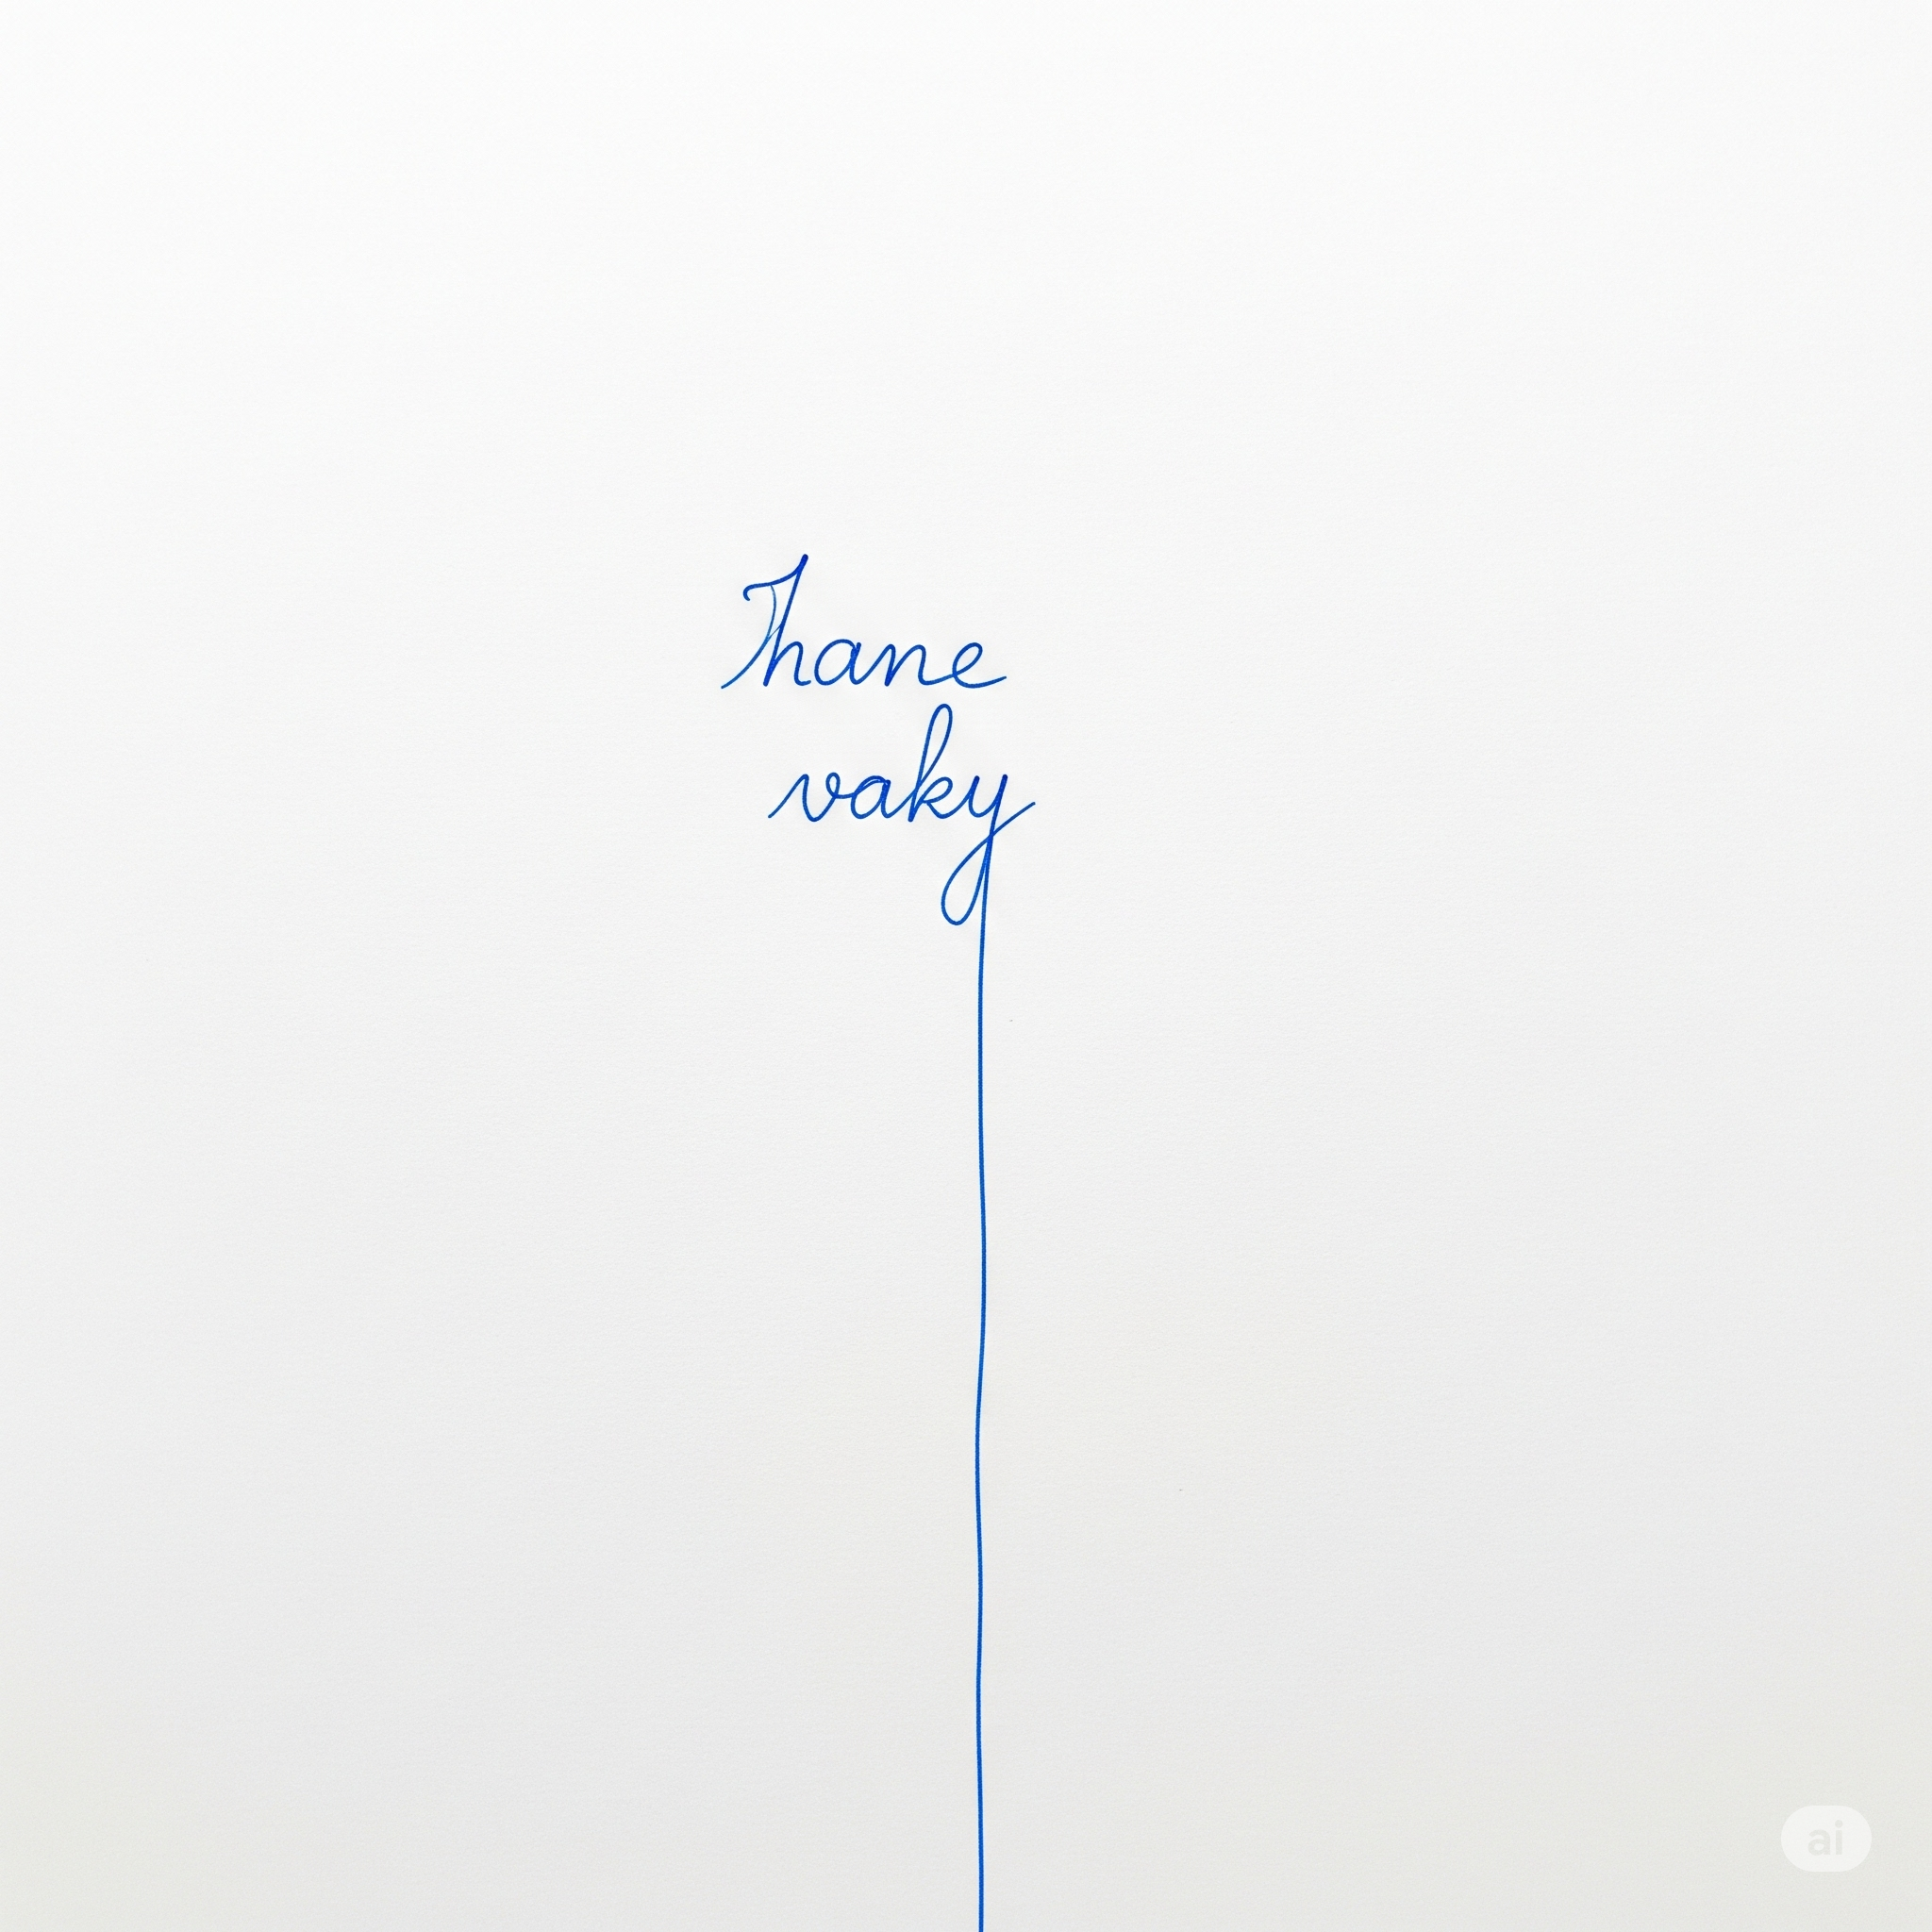 Thane
vaky
ai